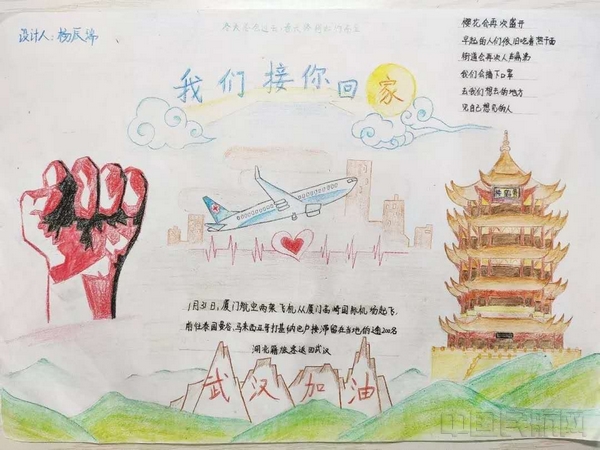 设计人:杨辰
我们接你回家
樱花会再次盛开
早起的人们依旧吃着热干面
街道会再次人声鼎沸
我们会摘下口罩
去我们想去的地方
见自己想见的人
黄鹤楼
1月31日,厦门航空两架飞机从厦门高崎国际机场起飞,
前往泰国曼谷、马来西亚哥打基纳巴卢接滞留在当地的逾200名
湖北籍旅客返回武汉
武汉加油
中国民航网